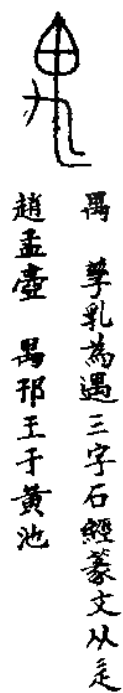 禺 孳乳為遇三字石經篆文从辵
趙孟壺 禺邗王于黃池